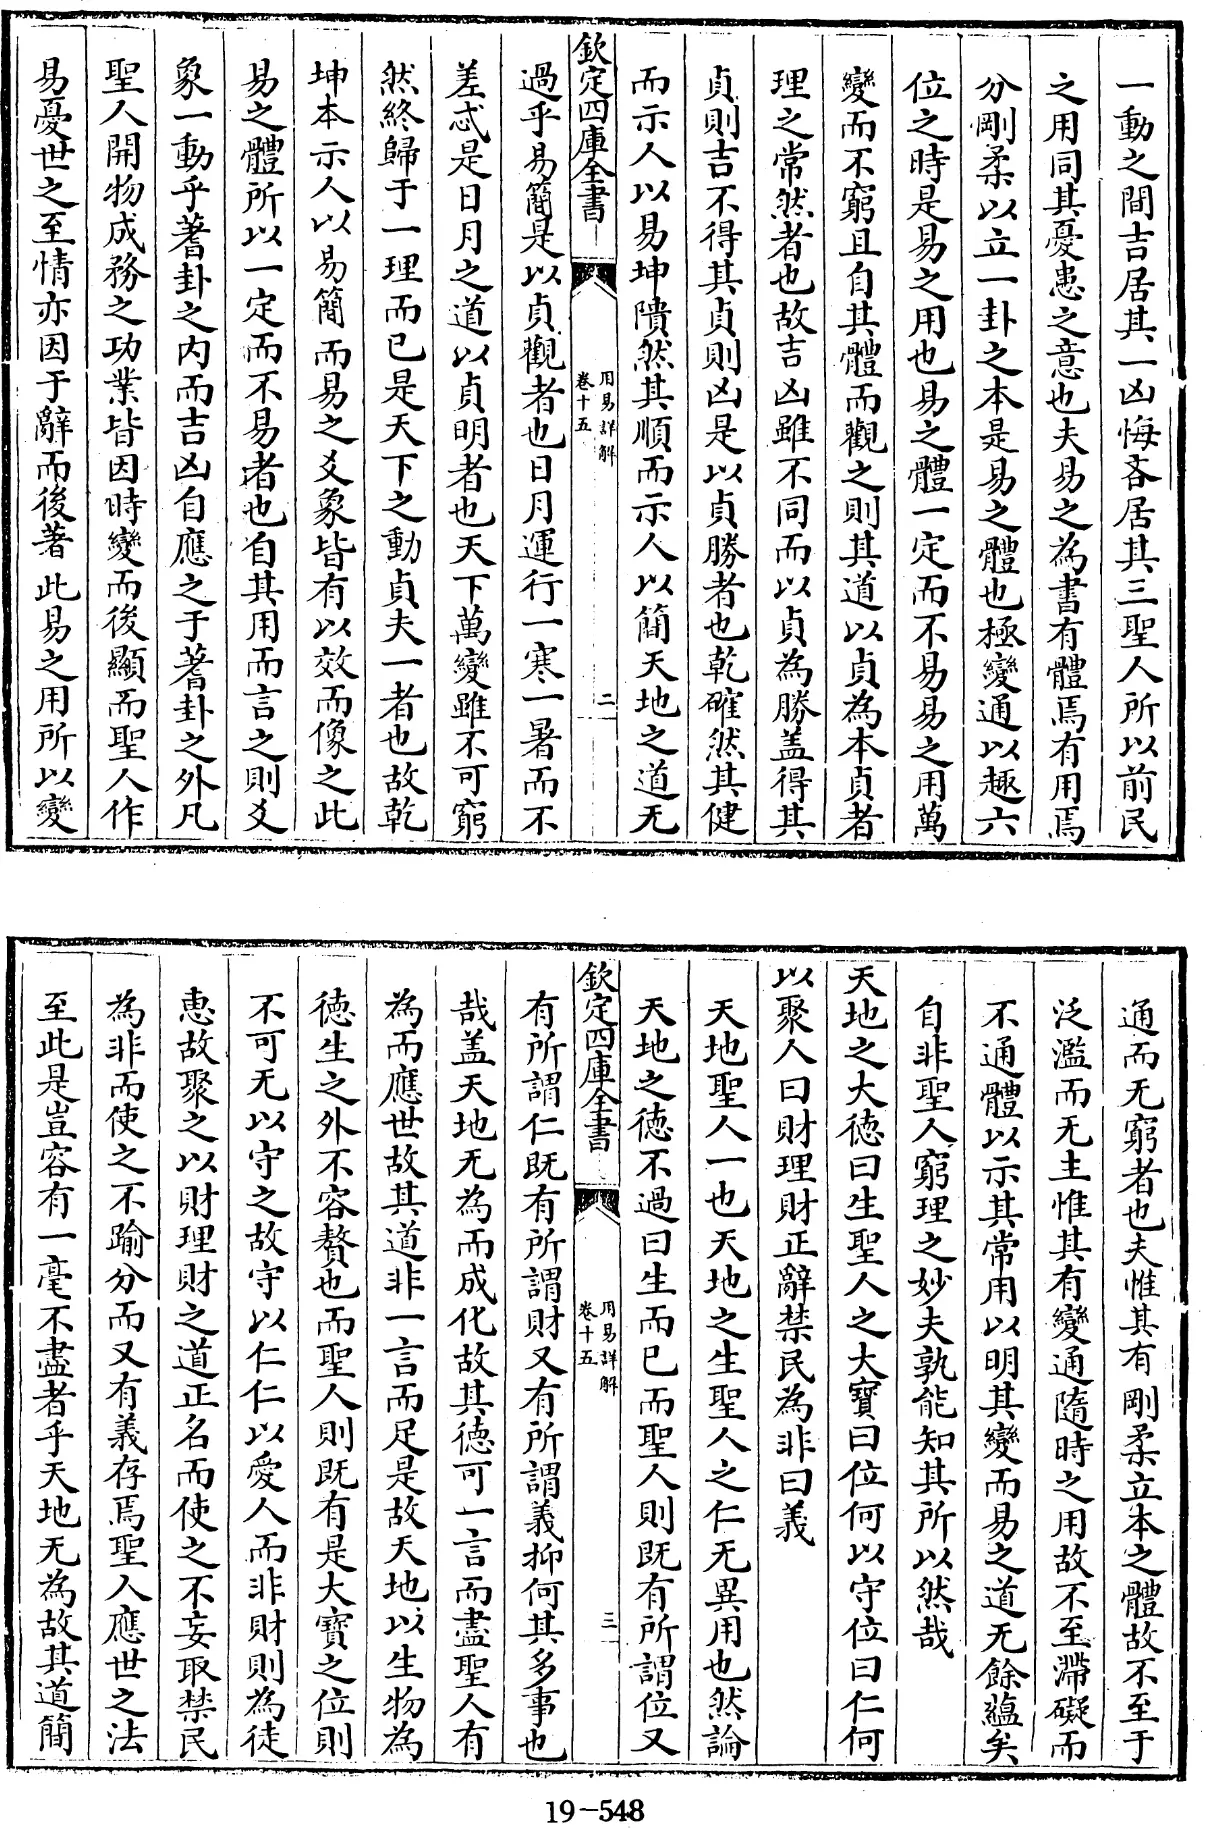 一動之間吉居其一凶悔吝居其三聖人所以前民
之用同其憂患之意也夫易之為書有體焉有用焉
分剛柔以立一卦之本是易之體也極變通以趣六
位之時是易之用也易之體一定而不易易之用萬
變而不窮且自其體而觀之則其道以貞為本貞者
理之常然者也故吉凶雖不同而以貞為勝盖得其
貞則吉不得其貞則凶是以貞勝者也乾確然其健
而示人以易坤隤然其順而示人以簡天地之道无
欽定四庫全書
用易詳解
卷十五
二
過乎易簡是以貞觀者也日月運行一寒一暑而不
差忒是日月之道以貞明者也天下萬變雖不可窮
然終歸于一理而已是天下之動貞夫一者也故乾
坤本示人以易簡而易之爻象皆有以效而像之此
易之體所以一定而不易者也自其用而言之則爻
象一動乎蓍卦之内而吉凶自應之于蓍卦之外凡
聖人開物成務之功業皆因時變而後顯而聖人作
易憂世之至情亦因于辭而後著此易之用所以變
通而无窮者也夫惟其有剛柔立本之體故不至于
泛濫而无主惟其有變通隨時之用故不至滯礙而
不通體以示其常用以明其變而易之道无餘蘊矣
自非聖人窮理之妙夫孰能知其所以然哉
天地之大德曰生聖人之大寶曰位何以守位曰仁何
以聚人曰財理財正辭禁民為非曰義
天地聖人一也天地之生聖人之仁无異用也然論
天地之德不過曰生而已而聖人則既有所謂位又
欽定四庫全書
用易詳解
卷十五
三
有所謂仁既有所謂財又有所謂義抑何其多事也
哉盖天地无為而成化故其德可一言而盡聖人有
為而應世故其道非一言而足是故天地以生物為
德生之外不容贅也而聖人則既有是大寶之位則
不可无以守之故守以仁仁以愛人而非財則為徒
惠故聚之以財理財之道正名而使之不妄取禁民
為非而使之不踰分而又有義存焉聖人應世之法
至此是豈容有一毫不盡者乎天地无為故其道簡
19-548